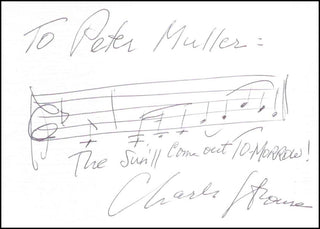 To Peter Muller =
The Sun'll Come out TO-MORROW!
Charles Strouse